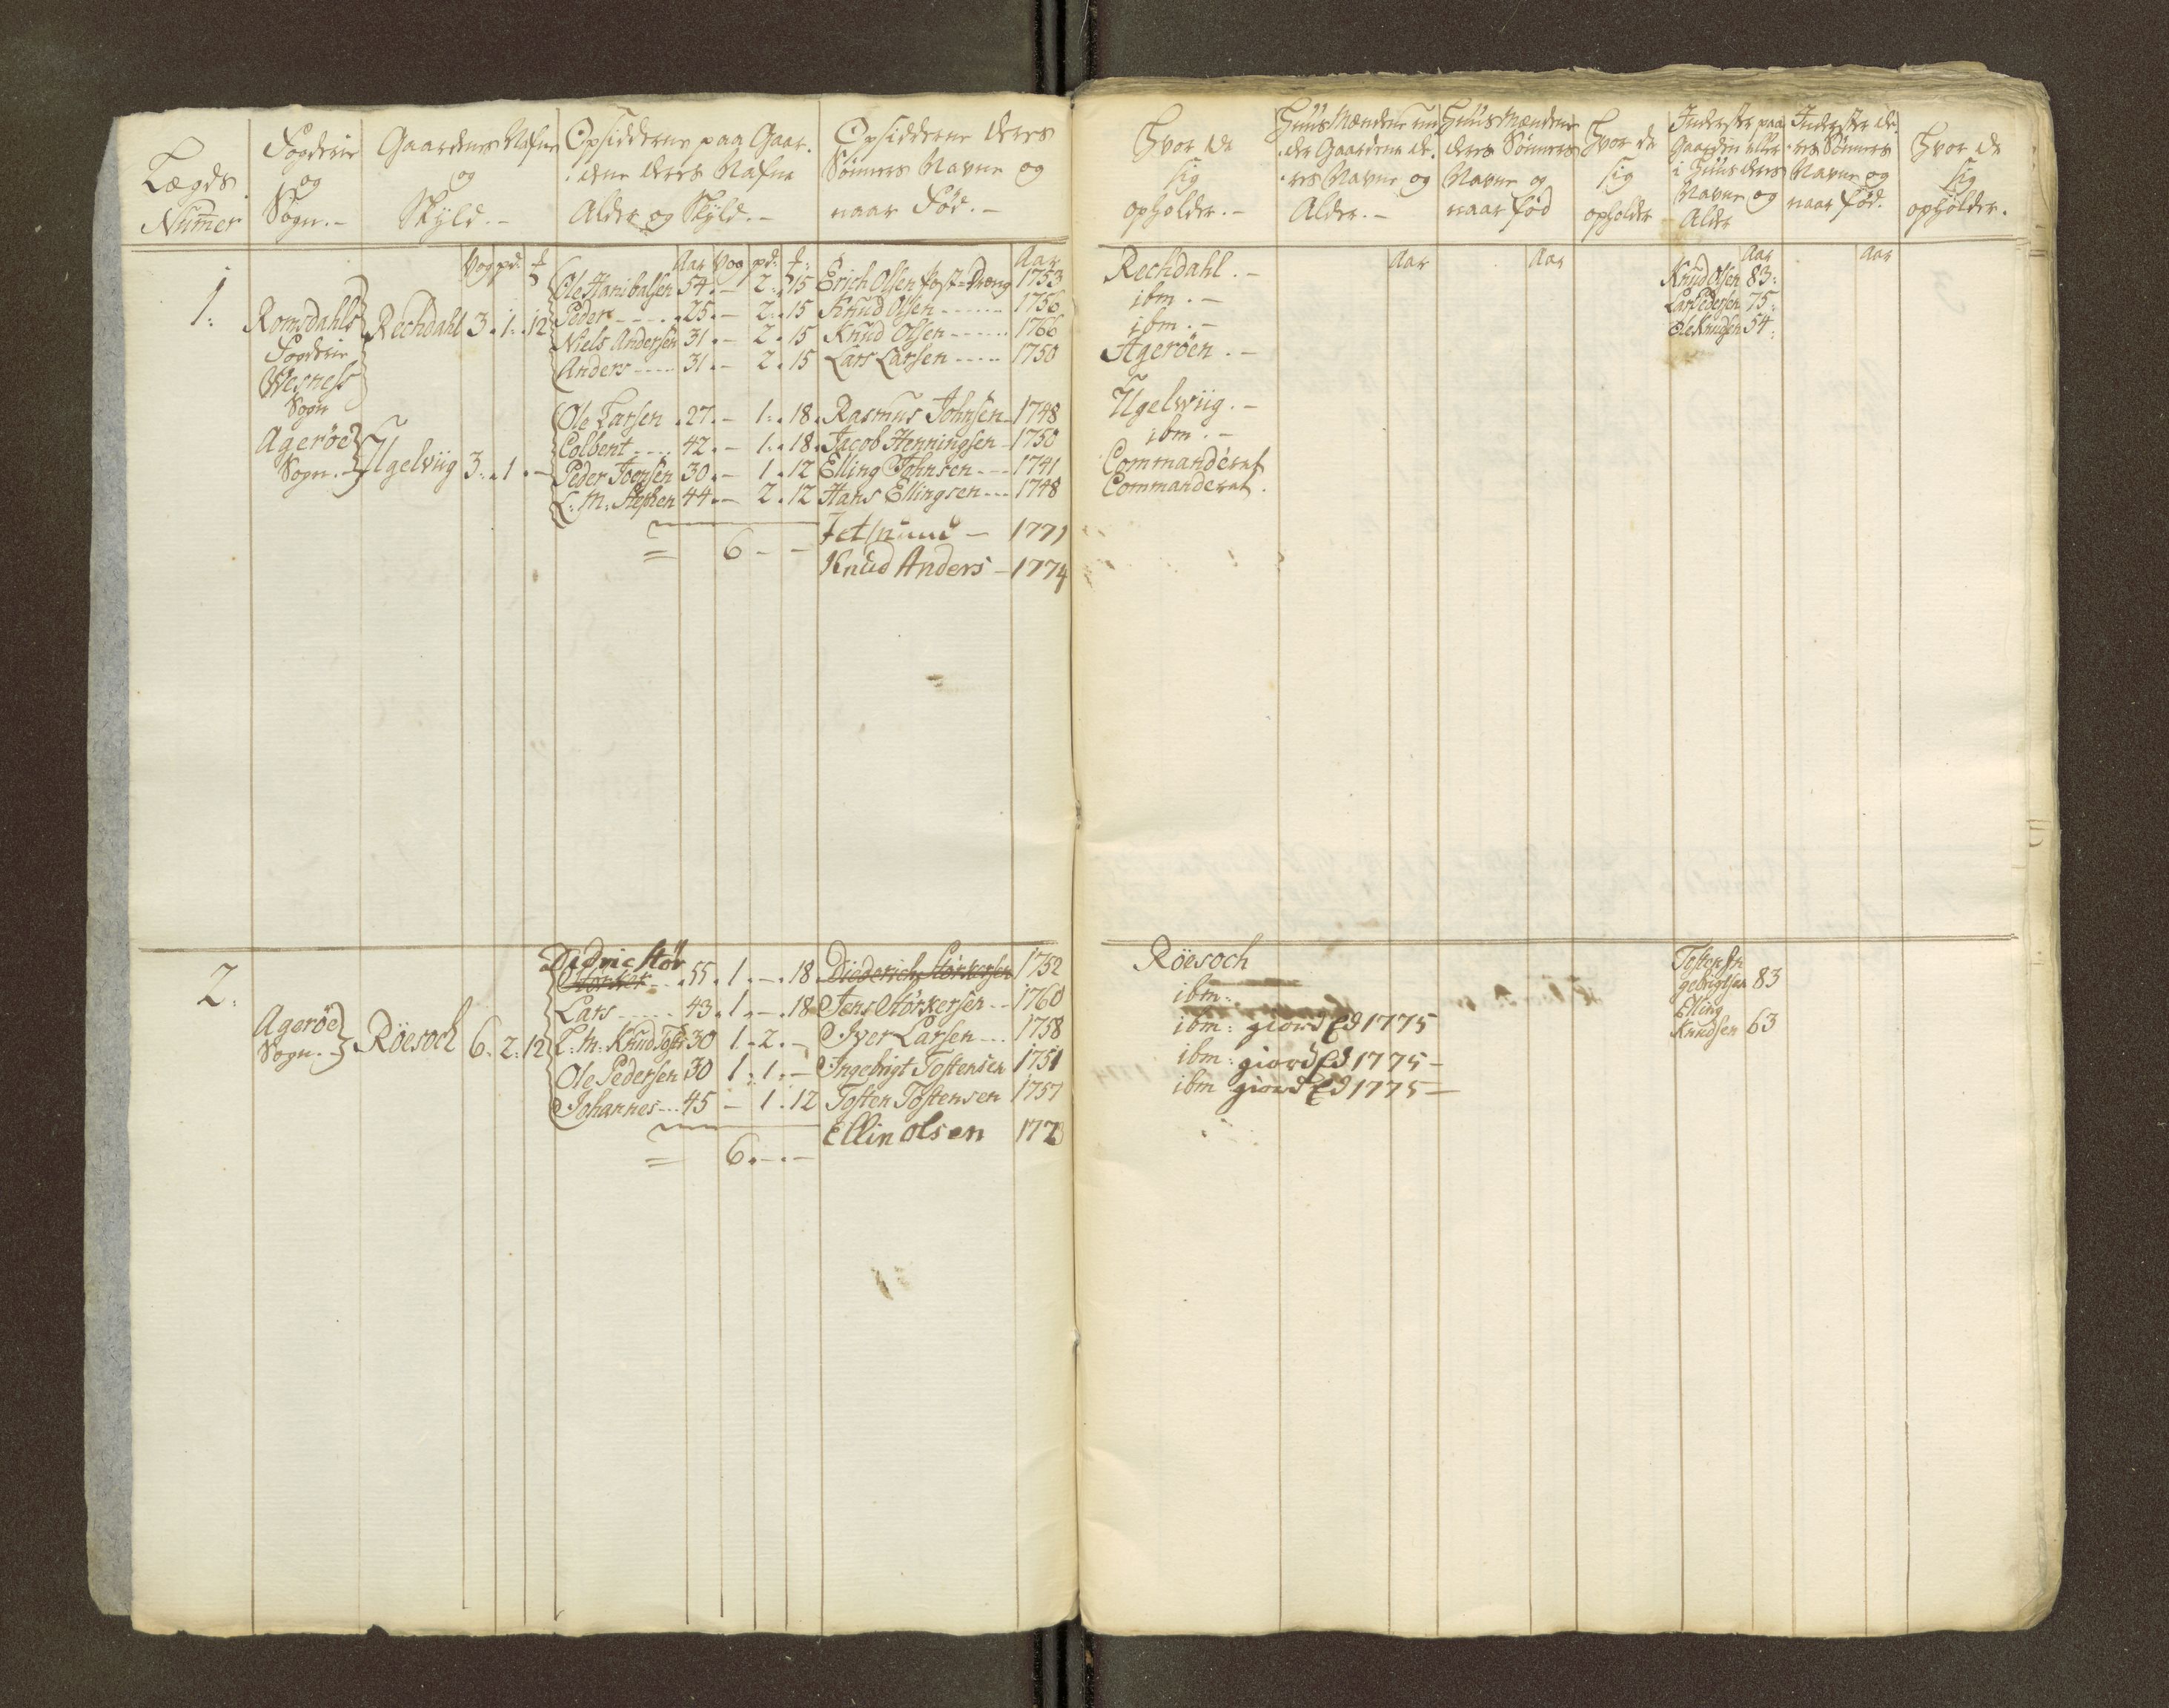 Lægds
Numer
Fogderie
og
Sogn.-
Gaardens Nafne
og
Skyld.-
Opsidderne paa Gaar-
dene deres Nafne
Alder og Skyld.-
Opsidderne deres
Sønners Navne og
naar Fød.-
Hvor de
sig
opholder.-
Huus Mændene un-
der Gaardene de-
res Navne og
Alder.-
Huus Mændene
deres Sønners
Navne og
naar fød
Hvor de
sig
opholder
Inderster paa
Gaarden eller
i Huus deres
Navne og
Alder
Inderster de-
res Sønners
Navne og
naar fød.
Hvor de
sig
opholder.
Vog pd. Aar Vog pd: Aar
Aar Aar Aar Aar
1:
Romsdahls
Fogderie
Wesness
Sogn
Rechdahl 3. 1. 12
Ole Hanibalsen 54. - 2. 15 Erich Olsen post-Dreng 1753 Rechdahl.- Knud Olsen 83:
Peder 25. - 2. 15 Knud Olsen 1756 ibm.- Lars Pedersen 75:
Niels Andersen 31. - 2. 15 Knud Olsen 1766 ibm.- Ole Knudsen 54:
Anders 31. - 2. 15 Lars Larsen 1750 Agerøen.-
Agerøe
Sogn.-
Ugelviig 3. 1. -
Ole Larsen 27. - 1. 18. Rasmus Johnsen 1748 Ugelwiig.-
Colbent 42. - 1. 18. Jacob Henningsen 1750 ibm.-
Peder Joensen 30. - 1. 12 Elling Johnsen 1741 Commanderet
L: M: Stephen 44. - 2. 12 Hans Ellingsen 1748 Commanderet.
= 6 - -
1771
Knud Anders - 1774
2:
Agerøe
Sogn.
Röesoch 6. 2. 12
Didric Stör
Störker 55. 1. -. 18 Diederich Störkersen 1752 Röesoch
Lars 43. 1. -. 18 Jens Störkersen 1760 ibm:
L: M: Knud Tosts 30 1. 2. - Iver Larsen 1758 ibm: giord Ed 1775
Ole Pedersen 30 1. 1. - Ingebrigt Tostensen 1751 ibm: giord Ed 1775 -
Johannes 45 - 1. 12 Tosten Tostensen 1757 ibm giord Ed 1775 -
= 6. -. -
Ellin Olsen
Tosten In
gebrigtsen 83
Elling
Knudsen 63